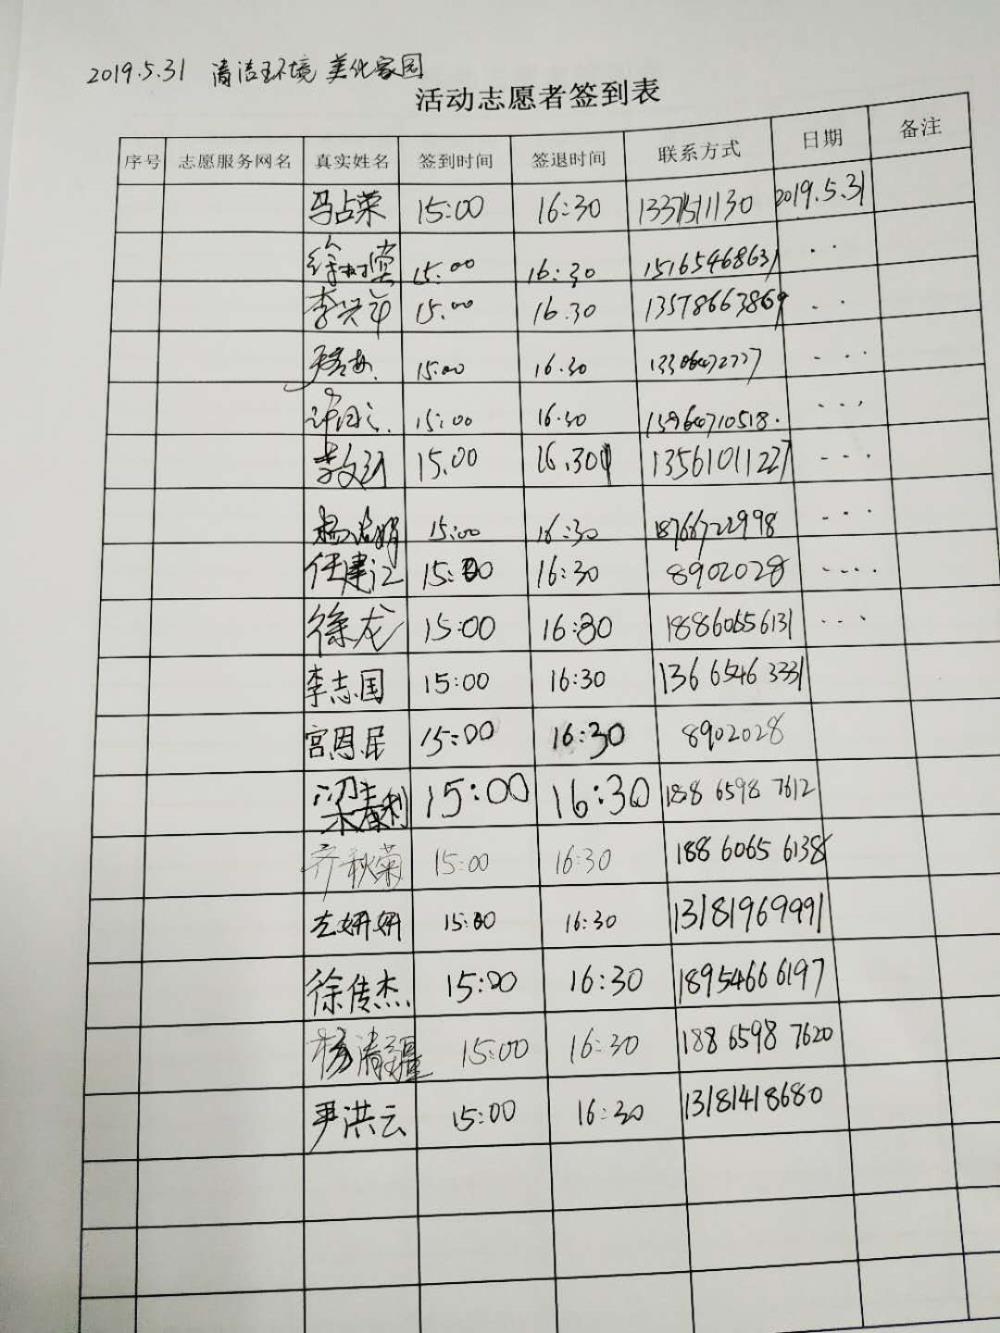 2019.5.31 清洁环境 美化家园
活动志愿者签到表
序号 志愿服务网名 真实姓名 签到时间 签退时间 联系方式 日期 备注
马占荣 15:00 16:30 13371511130 2019.5.31
徐树棠 15:00 16:30 15165468631 ..
李兴年 15:00 16.30 13578663869 ..
15:00 16.30 13306472727 ...
15:00 16:30 15964710518. ...
李文 15.00 16.30 13561011227 ...
杨志娟 15:00 16:30 18766722998 ...
任建江 15:00 16:30 8902028 ....
徐龙 15:00 16:30 18860656131 ...
李志国 15:00 16:30 136 6546 3331
宫恩民 15:00 16:30 8902028
梁春利 15:00 16:30 188 6598 7612
齐秋菊 15:00 16:30 188 6065 6138
左妍妍 15:00 16:30 13181969991
徐传杰 15:00 16:30 18954666197
杨清疆 15:00 16:30 188 6598 7620
尹洪云 15:00 16:30 13181418680